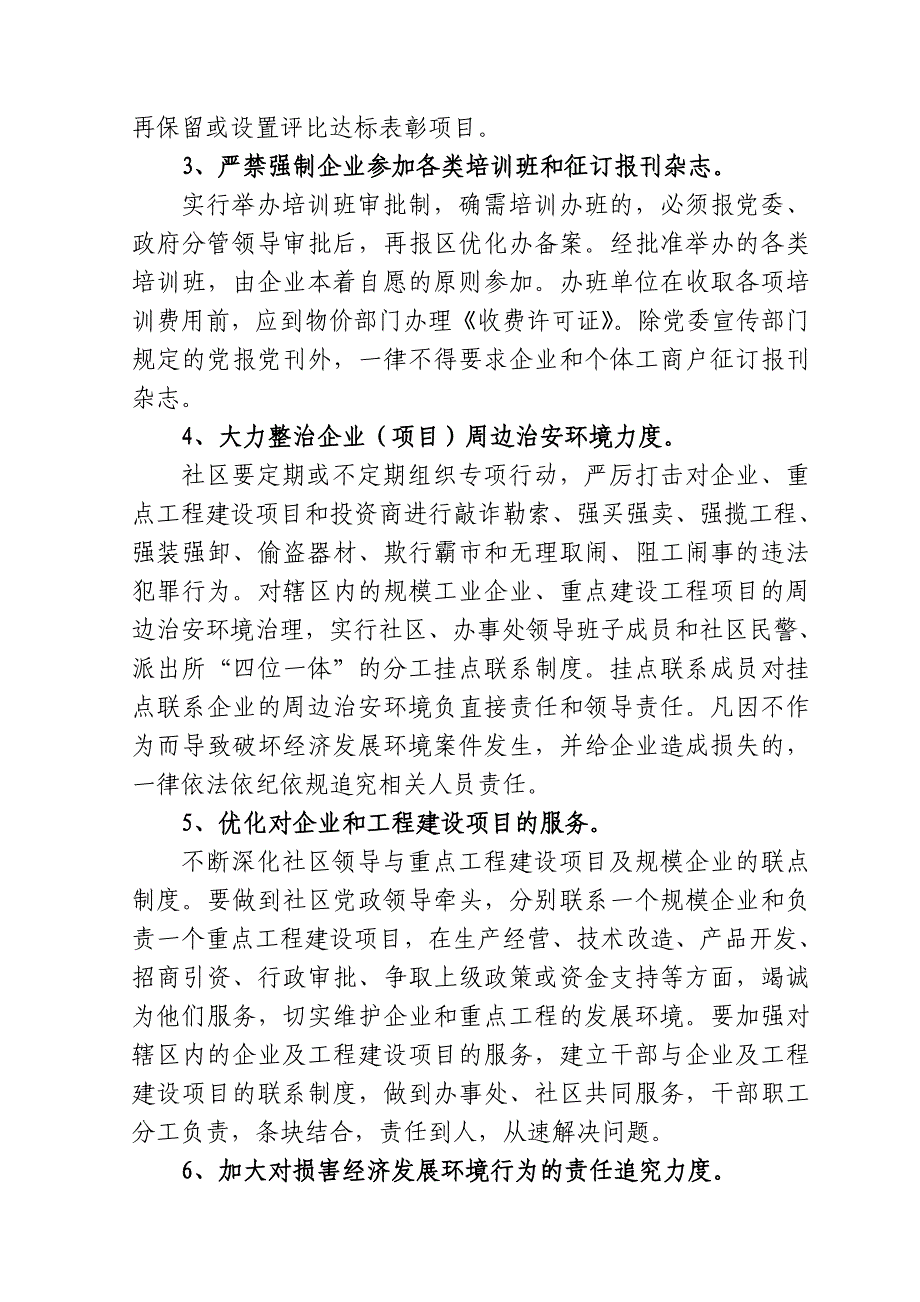 再保留或设置评比达标表彰项目。
3、严禁强制企业参加各类培训班和征订报刊杂志。
实行举办培训班审批制，确需培训办班的，必须报党委、
政府分管领导审批后，再报区优化办备案。经批准举办的各类
培训班，由企业本着自愿的原则参加。办班单位在收取各项培
训费用前，应到物价部门办理《收费许可证》。除党委宣传部门
规定的党报党刊外，一律不得要求企业和个体工商户征订报刊
杂志。
4、大力整治企业（项目）周边治安环境力度。
社区要定期或不定期组织专项行动，严厉打击对企业、重
点工程建设项目和投资商进行敲诈勒索、强买强卖、强揽工程、
强装强卸、偷盗器材、欺行霸市和无理取闹、阻工闹事的违法
犯罪行为。对辖区内的规模工业企业、重点建设工程项目的周
边治安环境治理，实行社区、办事处领导班子成员和社区民警、
派出所“四位一体”的分工挂点联系制度。挂点联系成员对挂
点联系企业的周边治安环境负直接责任和领导责任。凡因不作
为而导致破坏经济发展环境案件发生，并给企业造成损失的，
一律依法依纪依规追究相关人员责任。
5、优化对企业和工程建设项目的服务。
不断深化社区领导与重点工程建设项目及规模企业的联点
制度。要做到社区党政领导牵头，分别联系一个规模企业和负
责一个重点工程建设项目，在生产经营、技术改造、产品开发、
招商引资、行政审批、争取上级政策或资金支持等方面，竭诚
为他们服务，切实维护企业和重点工程的发展环境。要加强对
辖区内的企业及工程建设项目的服务，建立干部与企业及工程
建设项目的联系制度，做到办事处、社区共同服务，干部职工
分工负责，条块结合，责任到人，从速解决问题。
6、加大对损害经济发展环境行为的责任追究力度。